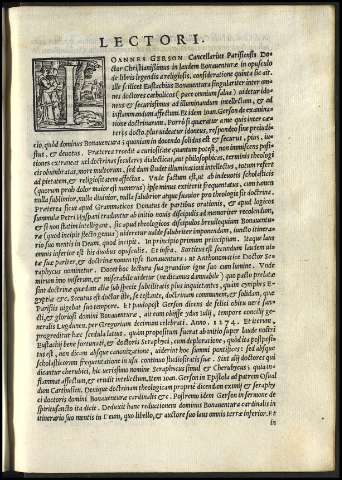 LECTORI.
IOANNES GERSON Cancellarius Parisiensis Do
ctor Christianissimus in laudem Bonauenturæ in opusculo
de libris legendis a religiosis, consideratione quinta sic ait.
ille scilicet Eustachius Bonauentura singulariter inter om
nes doctores catholicos (pace omnium saluo) videtur ido
neus & securissimus ad illuminandum intellectum, & ad
inflammandum affectum. Et idem Ioan. Gerson de examina
tione doctrinarum. Porro si quæratur a me quis inter cæte
ris docto. plus videatur idoneus, respondeo sine præiudi-
cio, quod dominus Bonauentura; quoniam in docendo solidus est & securus, pius, iu-
stus, & deuotus. Præterea recedit a curiositate quantum potest, non immiscens posi-
tiones extraneas vel doctrinas seculares dialecticas, aut philosophicas, terminis theologi
cis obumbratas, more multorum, sed dum studet illuminationi intellectus, totum refert
ad pietatem, & religiositatem affectus. Vnde factum est, vt ab indeuotis scholasticis
(quorum proh dolor maior est numerus) ipse minus extiterit frequentatus, cum tamen
nulla sublimior, nulla diuinior, nulla salubrior atque suauior pro theologis sit doctrina.
Præterea sicut apud Grammaticos Donatus de partibus orationis, & apud logicos
summulæ Petri Hyspani traduntur ab initio nouis discipulis ad memoriter recolendum,
& si non statim intelligant. sic apud theologicos discipulos breuiloquium Bonauenturæ
(quod incipit flecto genua) uideretur ualde salubriter imponendum, iuncto itinera-
rio suo mentis in Deum, quod incipit. In principio primum principium. Itaque laus
omnis inferior est his duobus opusculis. Et infra. Sortitus est secundum laudem ui-
tæ suæ pariter, & doctrinæ nomen ipsi Bonauentura: ut Anthonomatice Doctor Se-
raphicus nominetur. Docet hoc lectura sua grandior igne suo cum lumine.
mirum imo insertum, & miserabile uidetur (ne dicamus damnabile) quo pacto prælatæ
suæ doctrinæ quidam alia subspecie subtilitatis plus inquietantes, quam cymbres E-
gyptiæ &c. Secutus est doctor iste, se testante, doctrinam communem, & solidam, quæ
Parisiis uigebat suo tempore. Et paulopost Gerson dicens de felici obitu ac san-
cti, & gloriosi domini Bonauenturæ, ait eam obiisse tempore synodi, concilii gene-
ralis Lugduni, per Gregorium decimum celebrati. Anno. 1274. Et iterum,
progreditur hæc sedula latius. quam propositum fuerat ab initio super laude nostri
Eustachij bene fortunati, & doctoris Seraphici, cum deploratione, quod ita postposi-
tus est, non dicam absque canonizatione, uiderint hoc summi pontifices: sed absque
scholasticorum frequentatione in usu continuo studiositatis suæ. Sunt alij doctores qui
dicantur cherubici, hic uerissimo nomine Seraphicus simul & Cherubicus, quia in-
flammat affectum, & erudit intellectum. Item Ioan. Gerson in Epistola ad patrem Osuual
dum Cartusien. Denique doctrinam theologicam proprie dicendam existimo & seraphi
ci doctoris domini Bonauenturæ cardinalis &c. Postremo idem Gerson in sermone de
spiritusancto ita dicit. Deduxit hanc reductionem dominus Bonauentura cardinalis in
itinerario suo mentis in Deum, quo libello, & auctore suo laus omnis terræ inferior. Et
in